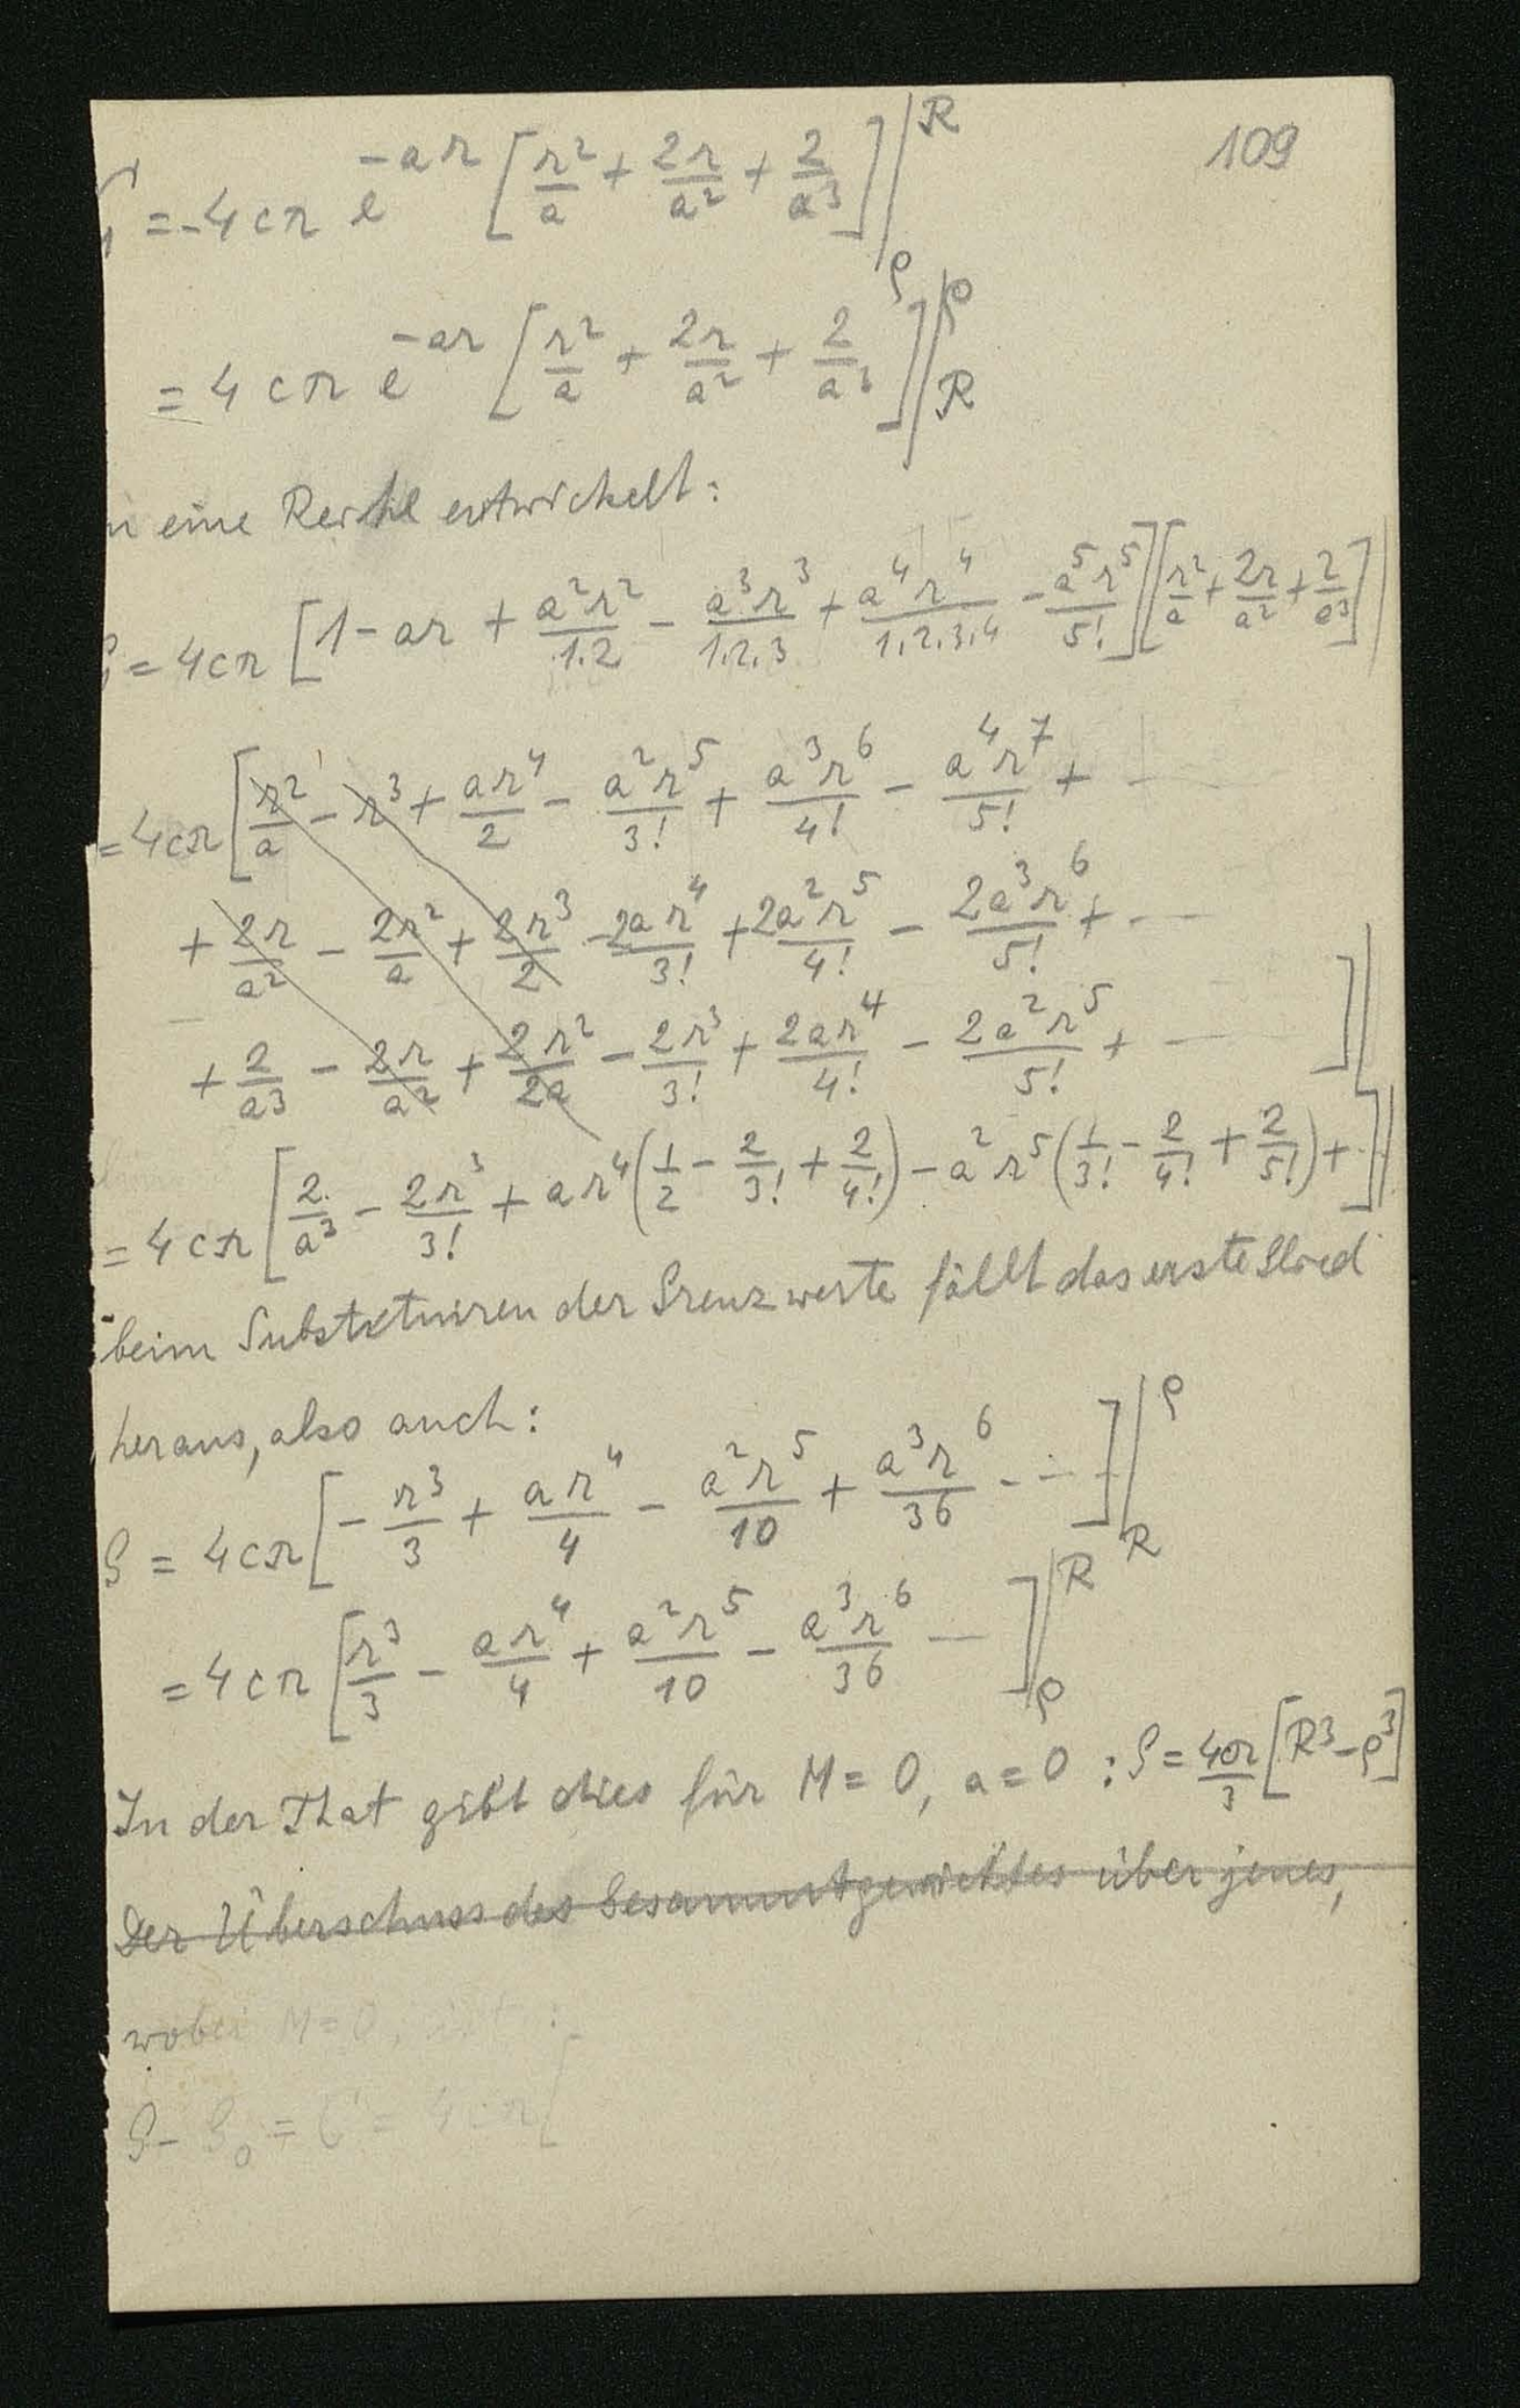 109
= -4cπ e^{-ar} [r²/a + 2r/a² + 2/a³] |_ρ^R
= 4cπ e^{-ar} [r²/a + 2r/a² + 2/a³] |_R^ρ
n eine Reihe entwickelt:
= 4cπ [1 - ar + a²r²/1.2 - a³r³/1.2.3 + a⁴r⁴/1.2.3.4 - a⁵r⁵/5!] [r²/a + 2r/a² + 2/a³] |
= 4cπ [r²/a - r³ + ar⁴/2 - a²r⁵/3! + a³r⁶/4! - a⁴r⁷/5! + - -
+ 2r/a² - 2r²/a + 2r³/2 - 2ar⁴/3! + 2a²r⁵/4! - 2a³r⁶/5! + - -
+ 2/a³ - 2r/a² + 2r²/2a - 2r³/3! + 2ar⁴/4! - 2a²r⁵/5! + - - ] |
= 4cπ [2/a³ - 2r³/3! + ar⁴(1/2 - 2/3! + 2/4!) - a²r⁵(1/3! - 2/4! + 2/5!) + . ] |
beim Substituiren der Grenzwerte fällt das erste Glied
heraus, also auch:
G = 4cπ [- r³/3 + ar⁴/4 - a²r⁵/10 + a³r⁶/36 - - - ] |_R^ρ
= 4cπ [r³/3 - ar⁴/4 + a²r⁵/10 - a³r⁶/36 - ] |_ρ^R
In der That gibt dies für M = 0, a = 0 : G = 4cπ/3 [R³ - ρ³]
Der Überschuss des Gesammtgewichtes über jenes,
wobei M = 0, ist :
G - G₀ = = 4cπ [